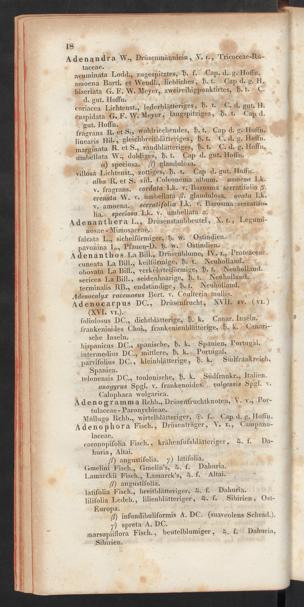 18
Adenandra W., Drüsenmännlein, V. 1., Tricoccae-Ru-
taceae.
acuminata Lodd., zugespitztes, ♄. f. Cap. d. g. Hoffn.
amoena Bartl. et Wendl., liebliches, ♄. t. Cap d. g. H.
biseriata G. F. W. Meyer, zweireihigpunktirtes, ♄. t. C.
d. gut. Hoffn.
coriacea Lichtenst., lederblätteriges, ♄. t. C. d. gut. H.
cuspidata G. F. W. Meyer, langspitziges, ♄. t. Cap d.
gut. Hoffn.
fragrans R. et S., wohlriechendes, ♄. t. Cap d. g. Hoffn.
linearis Hil., gleichbreitblätteriges, ♄. t. C. d. g. Hoffn.
marginata R. et S., randblätteriges, ♄. t. C. d. g. Hoffn.
umbellata W., doldiges, ♄. t. Cap d. gut. Hoffn.
α) speciosa. β) glandulosa.
villosa Lichtenst., zottiges, ♄. t. Cap d. gut. Hoffn.
alba R. et S. vid. Coleonema album. amoena Lk.
v. fragrans. cordata Lk. v. Barosma serratifolia β.
crenata W. v. umbellata β. glandulosa. ovata Lk.
v. amoena. serratifolia Lk. v. Barosma serratifo-
lia. speciosa Lk. v. umbellata α.
Adenanthera L., Drüsenstaubbeutel, X. 1., Legumi-
nosae-Mimosaceae.
falcata L., sichelförmiger, ♄. w. Ostindien.
pavonina L., Pfauen-D. ♄. w. Ostindien.
Adenanthos La Bill., Drüsenblume, IV. 1., Proteaceae.
cuneata La Bill., keilförmige, ♄. t. Neuholland.
obovata La Bill., verkehrteiförmige, ♄. t. Neuholland.
sericea La Bill., seidenhaarige, ♄. t. Neuholland.
terminalis RB., endständige, ♄. t. Neuholland.
Adenocalyx racemosus Bert. v. Coulteria mollis.
Adenocarpus DC., Drüsenfrucht, XVII. IV. (VI.)
(XVI. VI.).
foliolosus DC., dichtblätterige, ♄. k. Canar. Inseln.
frankenioides Chois., frankenienblätterige, ♄. k. Canari-
sche Inseln.
hispanicus DC., spanische, ♄. k. Spanien, Portugal.
intermedius DC., mittlere, ♄. k. Portugal.
parvifolius DC., kleinblätterige, ♄. k. Südfrankreich,
Spanien.
telonensis DC., toulonische, ♄. k. Südfrankr., Italien.
anagyrus Spgl. v. frankenoides. vulgaris Spgl. v.
Calophaca wolgarica.
Adenogramma Rchb., Drüsenfruchtknoten, V. 1., Por-
tulaceae-Paronychinae.
Mollugo Rchb., wirtelblätteriger, ☉. f. Cap d. g. Hoffn.
Adenophora Fisch., Drüsenträger, V. 1., Campanu-
laceae.
coronopifolia Fisch., krähenfussblätteriger, ♃. f. Da-
huria, Altai.
β) angustifolia. γ) latifolia.
Gmelini Fisch., Gmelin's, ♃. f. Dahuria.
Lamarckii Fisch., Lamarck's, ♃. f. Altai.
β) angustifolia.
latifolia Fisch., breitblätteriger, ♃. f. Dahuria.
lilifolia Ledeb., lilienblätteriger, ♃. f. Sibirien, Ost-
Europa.
β) infundibuliformis A. DC. (suaveolens Schrad.).
γ) spreta A. DC.
marsupiiflora Fisch., beutelblumiger, ♃. f. Dahuria,
Sibirien.